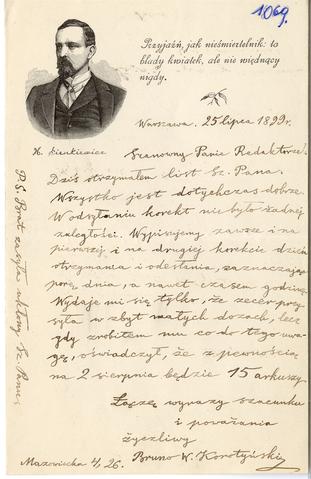 1069.
Przyjaźń, jak nieśmiertelnik: to
blady kwiatek, ale nie więdnący
nigdy.
H. Sienkiewicz
Warszawa. 25 lipca 1899 r.
Szanowny Panie Redaktorze!
Dziś otrzymałem list Sz. Pana.
Wszystko jest dotychczas dobrze.
W odsyłaniu korekt nie było żadnej
zaległości. Wypisujemy zawsze i na
pierwszej, i na drugiej korekcie dzień
otrzymania i odesłania, zaznaczając
porę dnia, a nawet czasem godzinę.
Wydaje mi się tylko, że zecer przy-
syła w zbyt małych dozach, lecz
gdy zrobiłem mu co do tego uwa-
gę, oświadczył, że z pewnością
na 2 sierpnia będzie 15 arkuszy.
Łączę wyrazy szacunku
i poważania
życzliwy
Bruno W. Korotyński
Mazowiecka 4, 26.
P.S. Brat zasyła ukłony Sz. Panu.